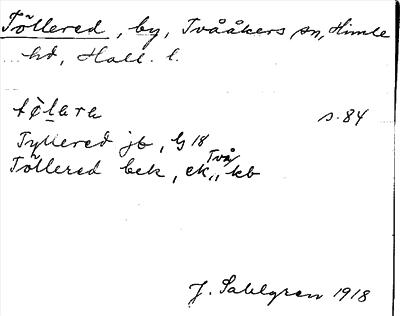 Töllered, by, Tvååkers sn, Himle
hd, Hall. l.
tø̀lara s. 84
Tyllered jb, G 18
Töllered bek, ek, Två kb
J. Sahlgren 1918